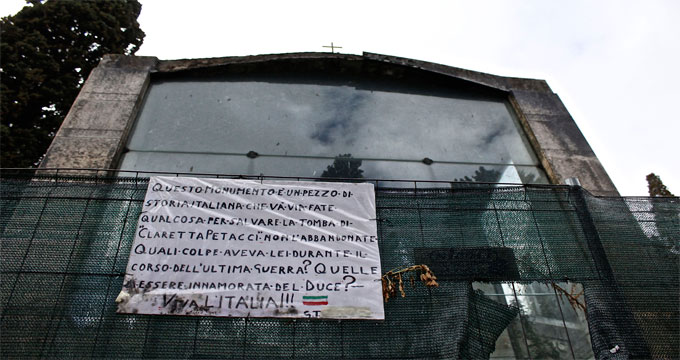 QUESTO MONUMENTO È UN PEZZO DI
STORIA ITALIANA CHE VÀ VIA FATE
QUALCOSA PER SALVARE LA TOMBA DI
"CLARETTA PETACCI" NON L'ABBANDONATE
QUALI COLPE AVEVA LEI DURANTE IL
CORSO DELL'ULTIMA GUERRA? QUELLE
ESSERE INNAMORATA DEL DUCE? -
VIVA L'ITALIA!!!
S.T.